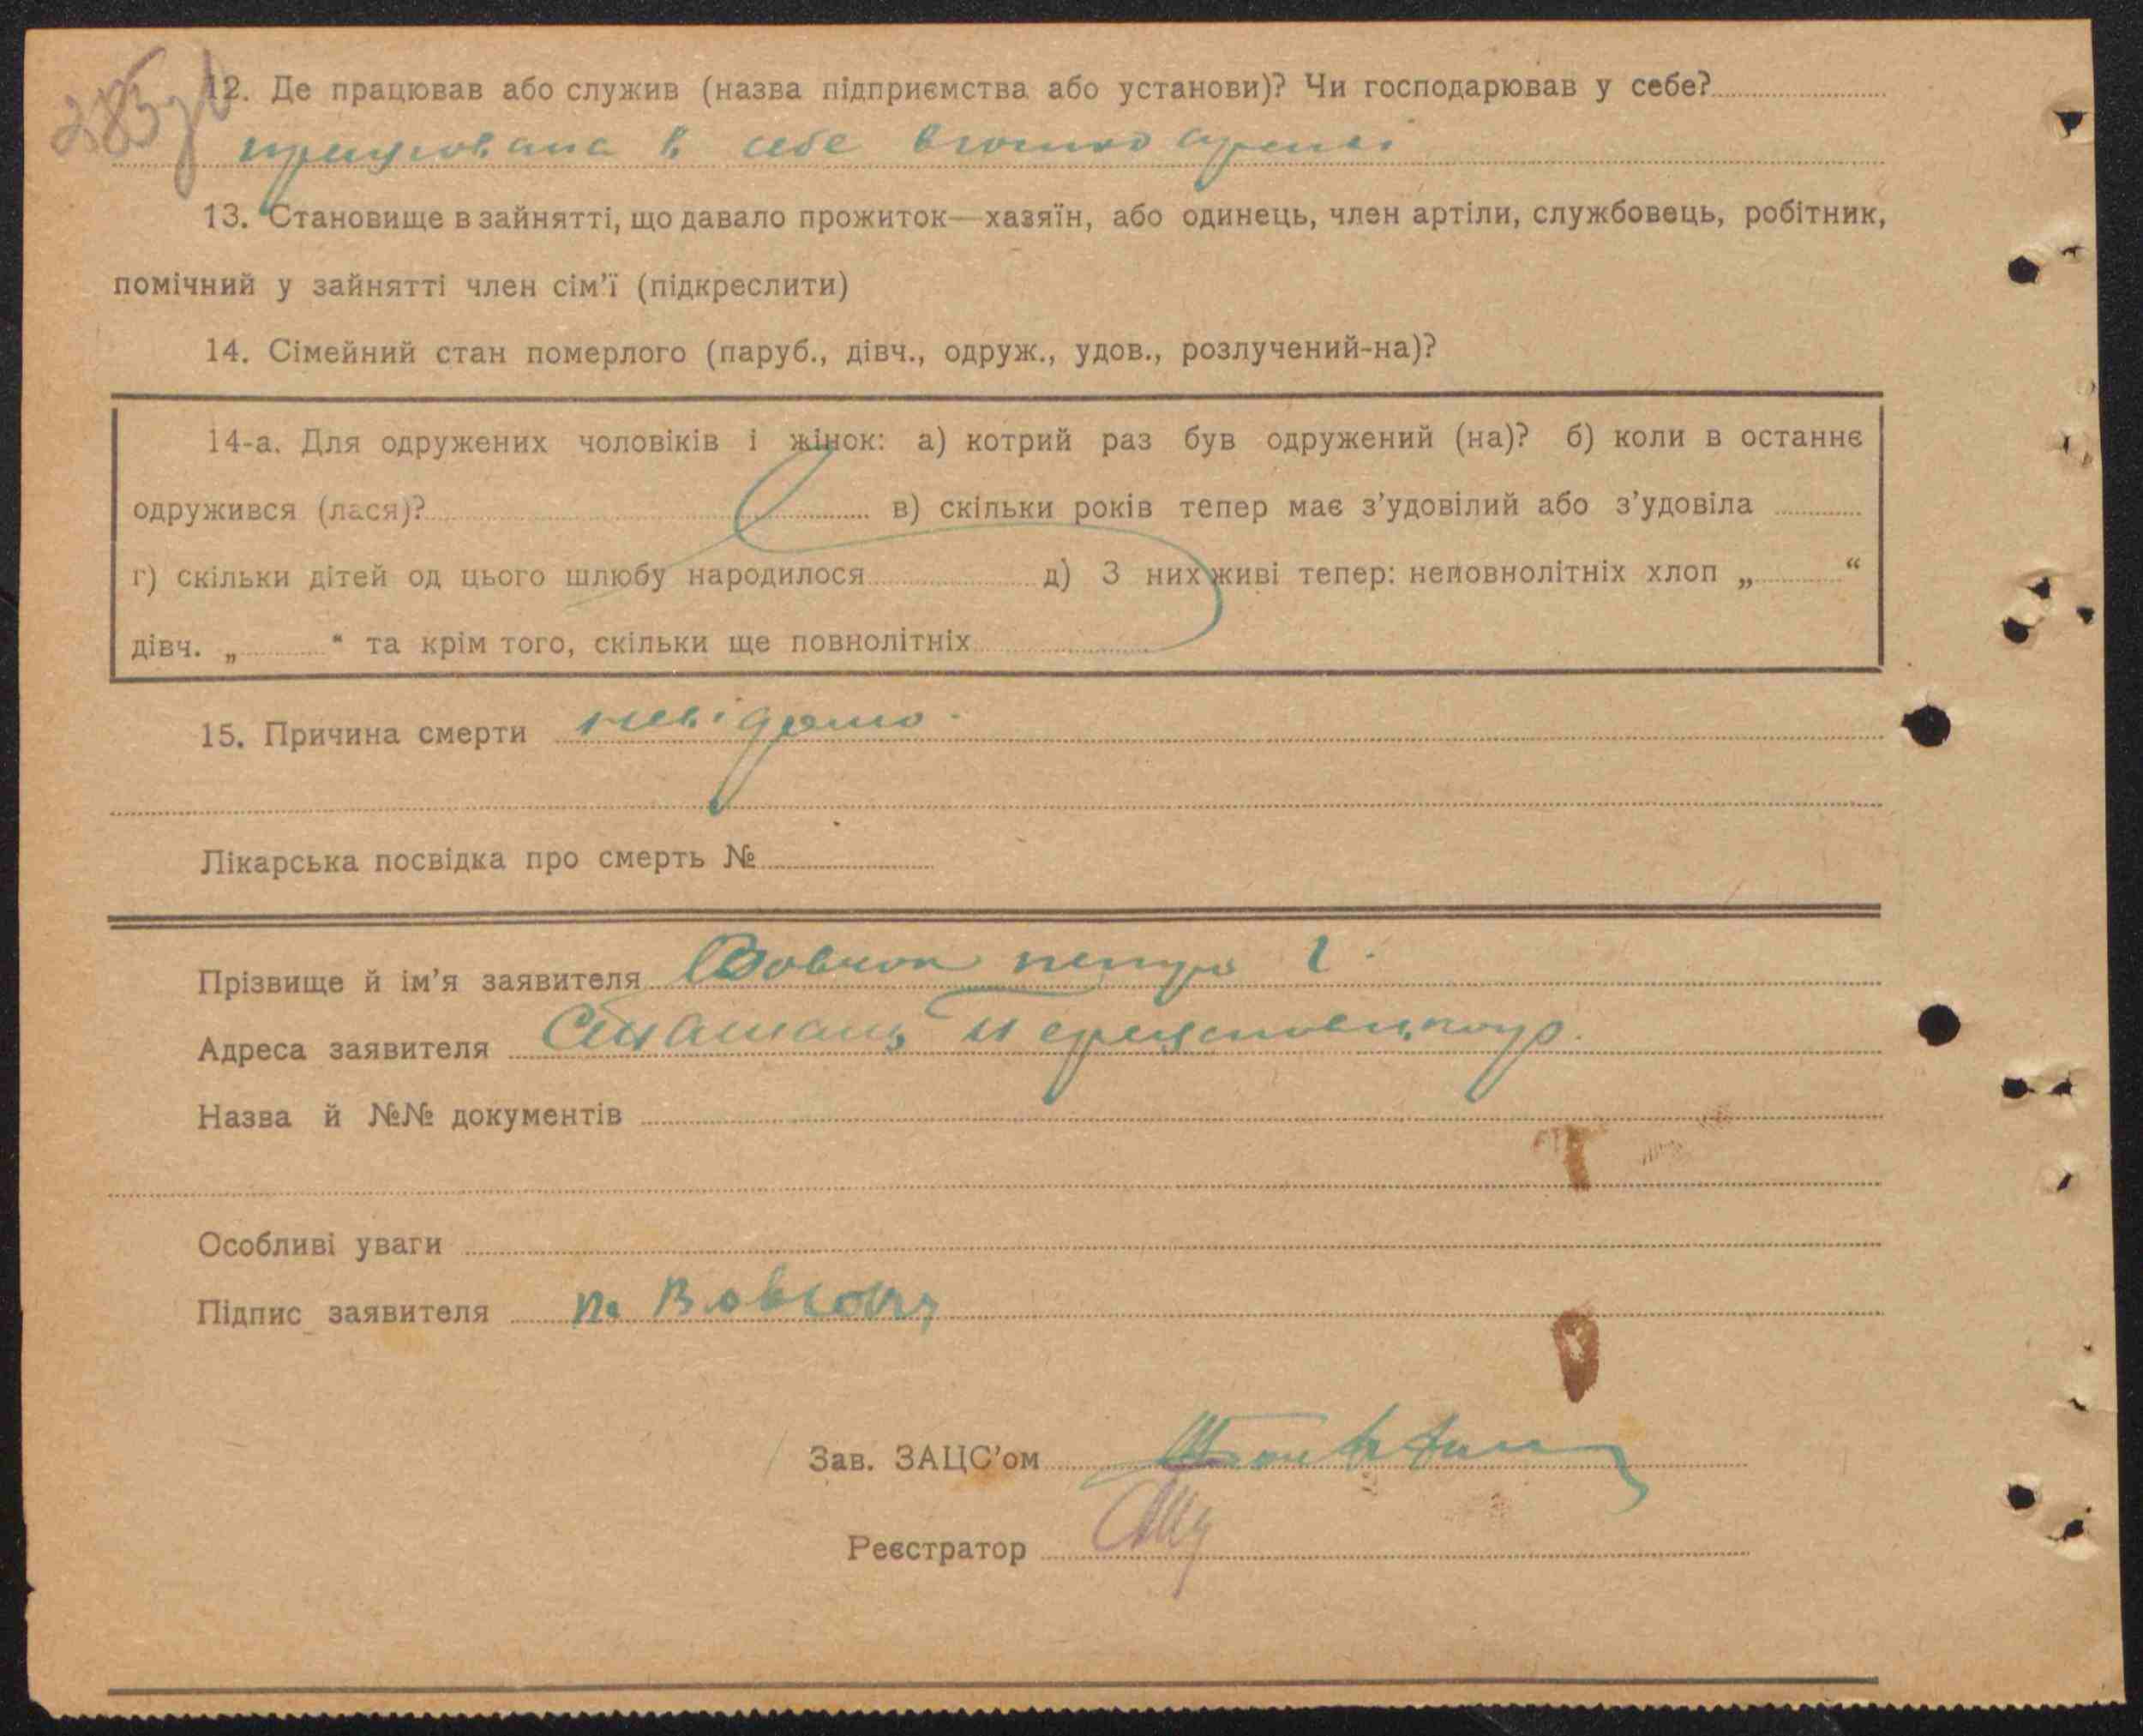 285
12. Де працював або служив (назва підприємства або установи)? Чи господарював у себе?
працювала в себе
13. Становище в зайнятті, що давало прожиток—хазяїн, або одинець, член артіли, службовець, робітник,
помічний у зайнятті член сім'ї (підкреслити)
14. Сімейний стан померлого (паруб., дівч., одруж., удов., розлучений-на)?
14-а. Для одружених чоловіків і жінок: а) котрий раз був одружений (на)? б) коли в останнє
одружився (лася)? в) скільки років тепер має з'удовілий або з'удовіла
г) скільки дітей од цього шлюбу народилося д) З них живі тепер: неповнолітніх хлоп „ “
дівч. „ “ та крім того, скільки ще повнолітніх
15. Причина смерти невідомо.
Лікарська посвідка про смерть №
Прізвище й ім'я заявителя Вовчок петро
Адреса заявителя
Назва й №№ документів
Особливі уваги
Підпис заявителя
Зав. ЗАЦС'ом
Реєстратор